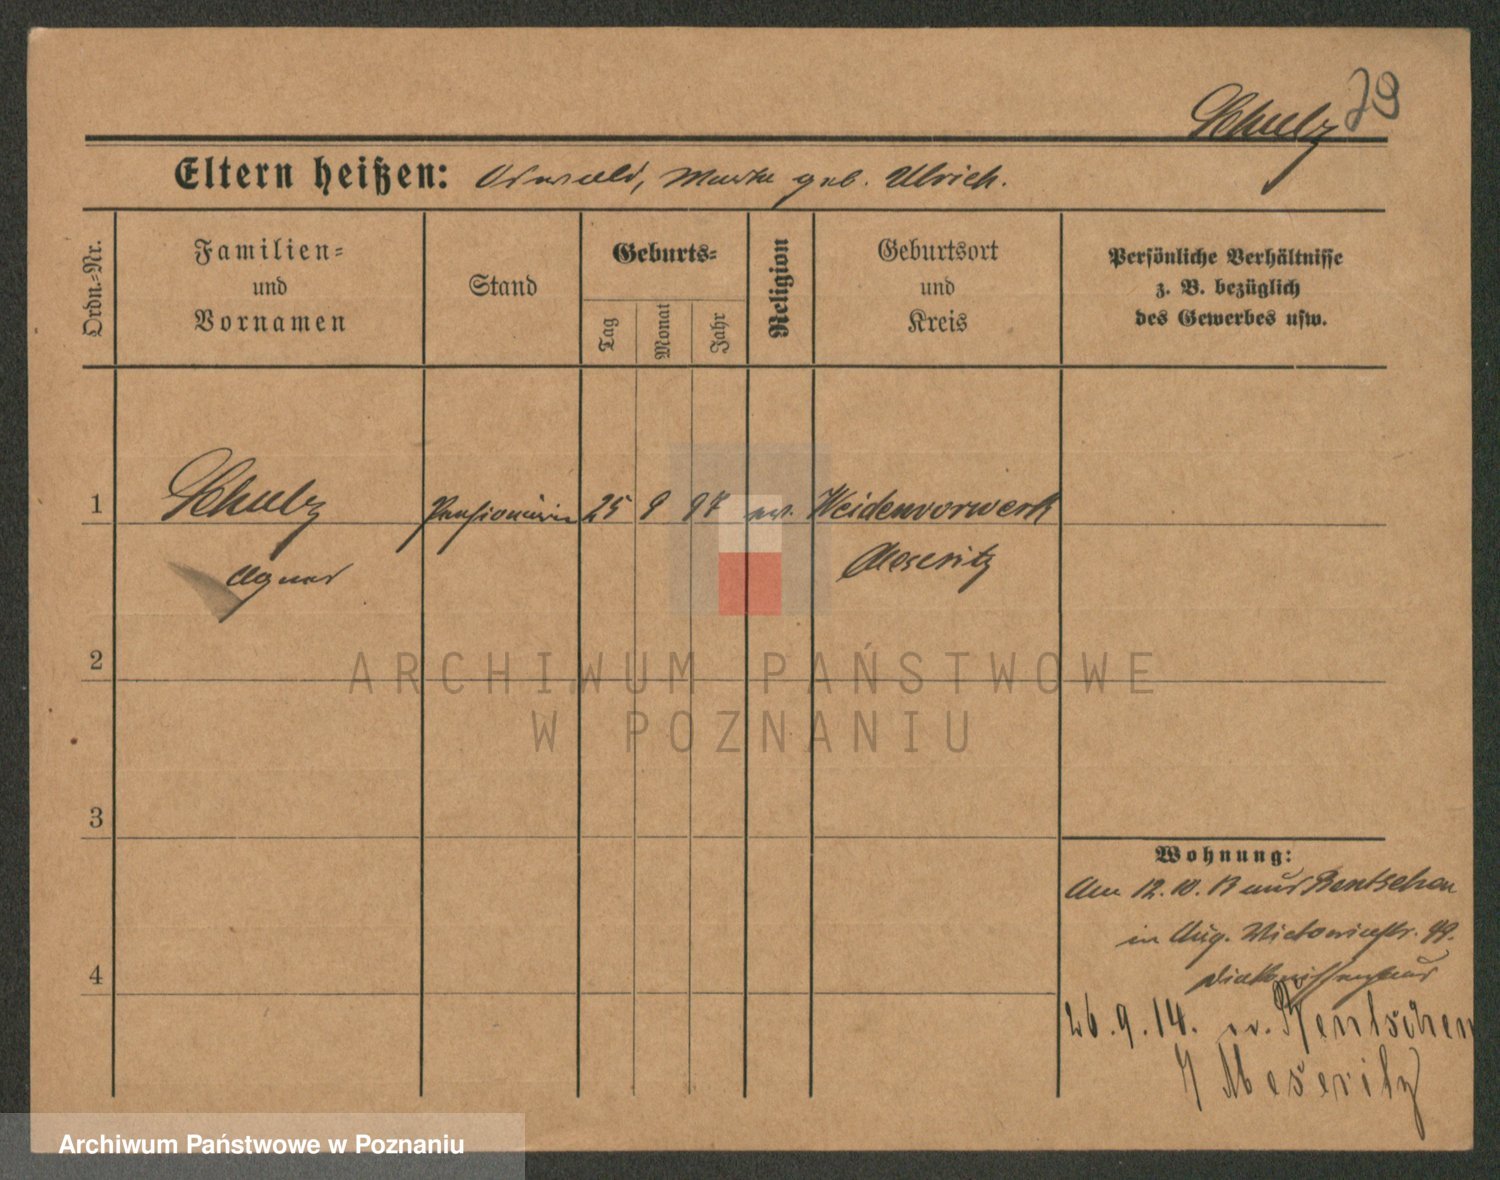 Schulz 79
Eltern heißen: Oswald, Martha geb. Ulrich.
Ordn.=Nr.
Familien=
und
Vornamen
Stand
Geburts=
Tag
Monat
Jahr
Religion
Geburtsort
und
Kreis
Persönliche Verhältnisse
z. B. bezüglich
des Gewerbes usw.
1 Schulz Pensionärin 25 9 97 ev. Weidenvorwerk
Agnes Meseritz
2
ARCHIWUM PAŃSTWOWE
W POZNANIU
3
Wohnung:
Am 12. 10. 13 aus Bentschen
in Aug. Victoriastr. 
Diakonissenhaus
4
26. 9. 14. n. Bentschen
Meseritz
Archiwum Państwowe w Poznaniu